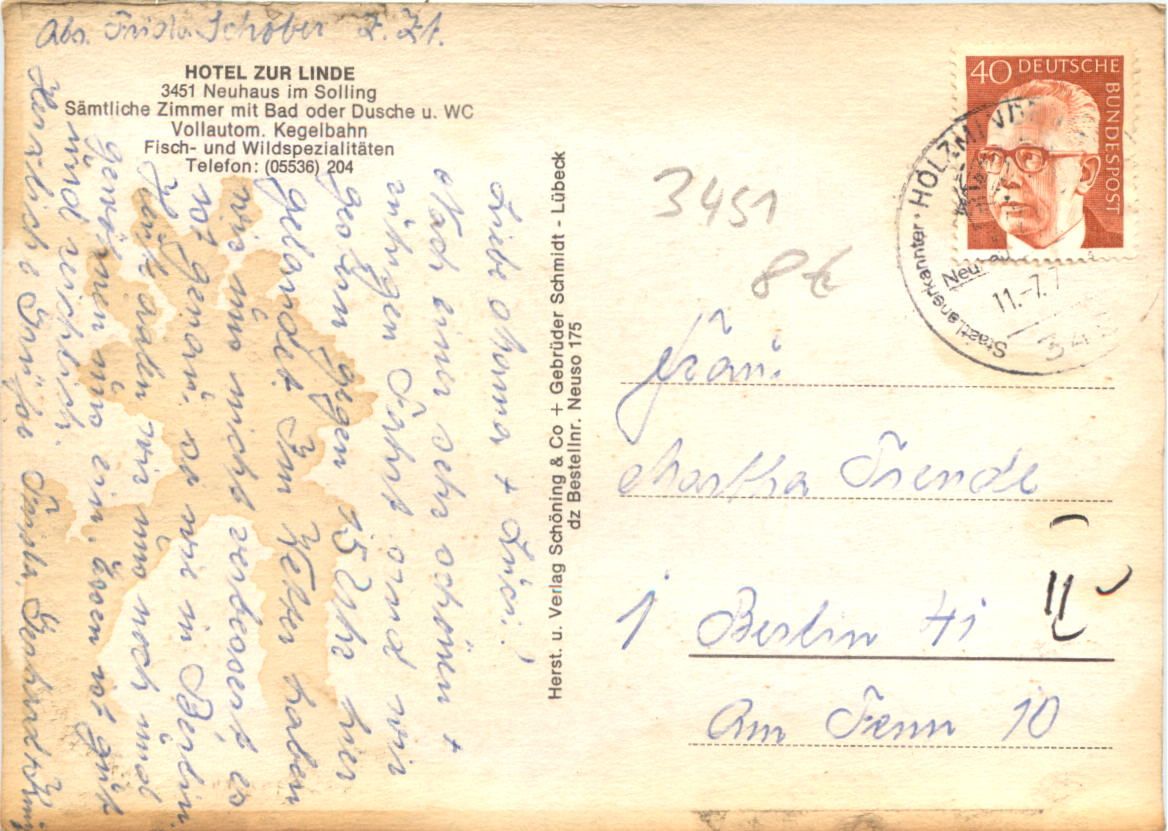 Abs. Frida Schober z. Zt.
HOTEL ZUR LINDE
3451 Neuhaus im Solling
Sämtliche Zimmer mit Bad oder Dusche u. WC
Vollautom. Kegelbahn
Fisch- und Wildspezialitäten
Telefon: (05536) 204
Liebe Omma + Lusi!
Nach einer sehr schönen +
ruhigen Fahrt sind wir
gestern gegen 15 Uhr hier
gelandet. Im Wetter haben
wir uns nicht verbessert es
ist genau so wie in Berlin.
wir uns noch und
gewöhnen uns ein, Essen ist gut
und reichlich.
Herzliche Grüße Frida, Gerhard +
Herst. u. Verlag Schöning & Co + Gebrüder Schmidt - Lübeck
dz Bestellnr. Neuso 175
40 DEUTSCHE BUNDESPOST
HOLZMINDEN
Staatl. anerkannter
11.-7.7
3451
8€
Frau
Martha Trende
1 Berlin 41
Am Fenn 10